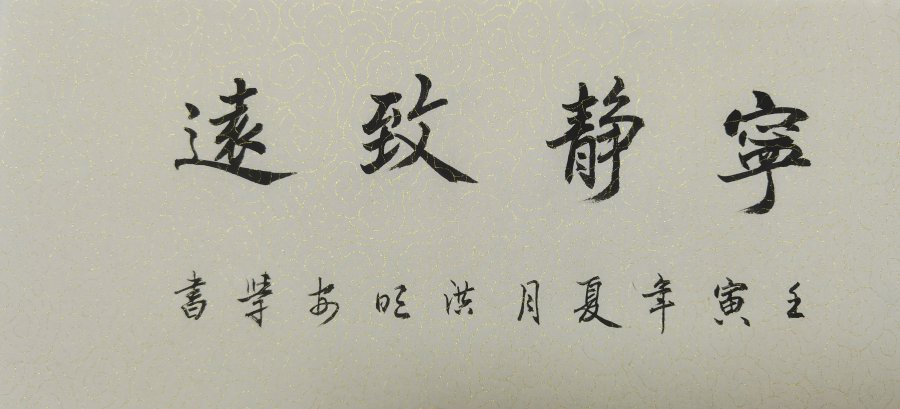 寧静致遠
壬寅年夏月洪旺安學書